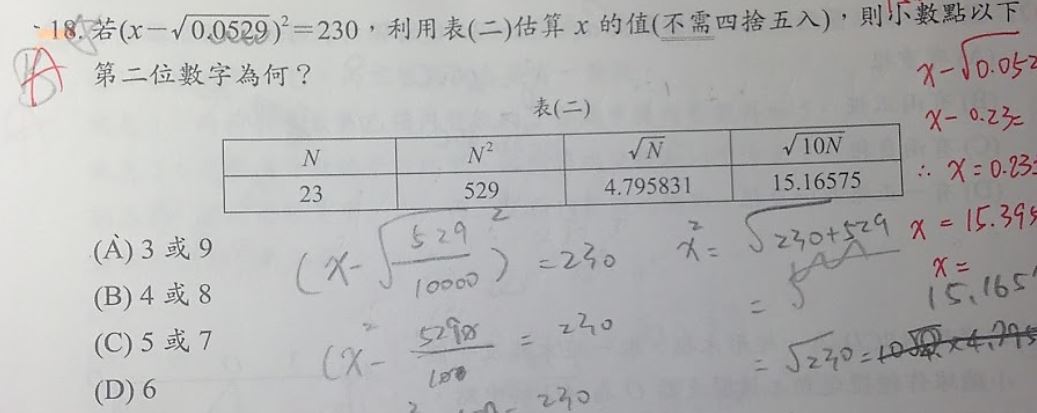 18. 若(x−√0.0529)²=230，利用表(二)估算 x 的值(不需四捨五入)，則小數點以下
第二位數字為何？
A
表(二)
N N² √N √10N
23 529 4.795831 15.16575
(A) 3 或 9
(B) 4 或 8
(C) 5 或 7
(D) 6
(x-√529/10000)²=230
(x-
=230
230
x²=√230+529
=
=√230=
x-√0.052
x-0.23=
∴ x=0.23
x=15.39
x=
15.165